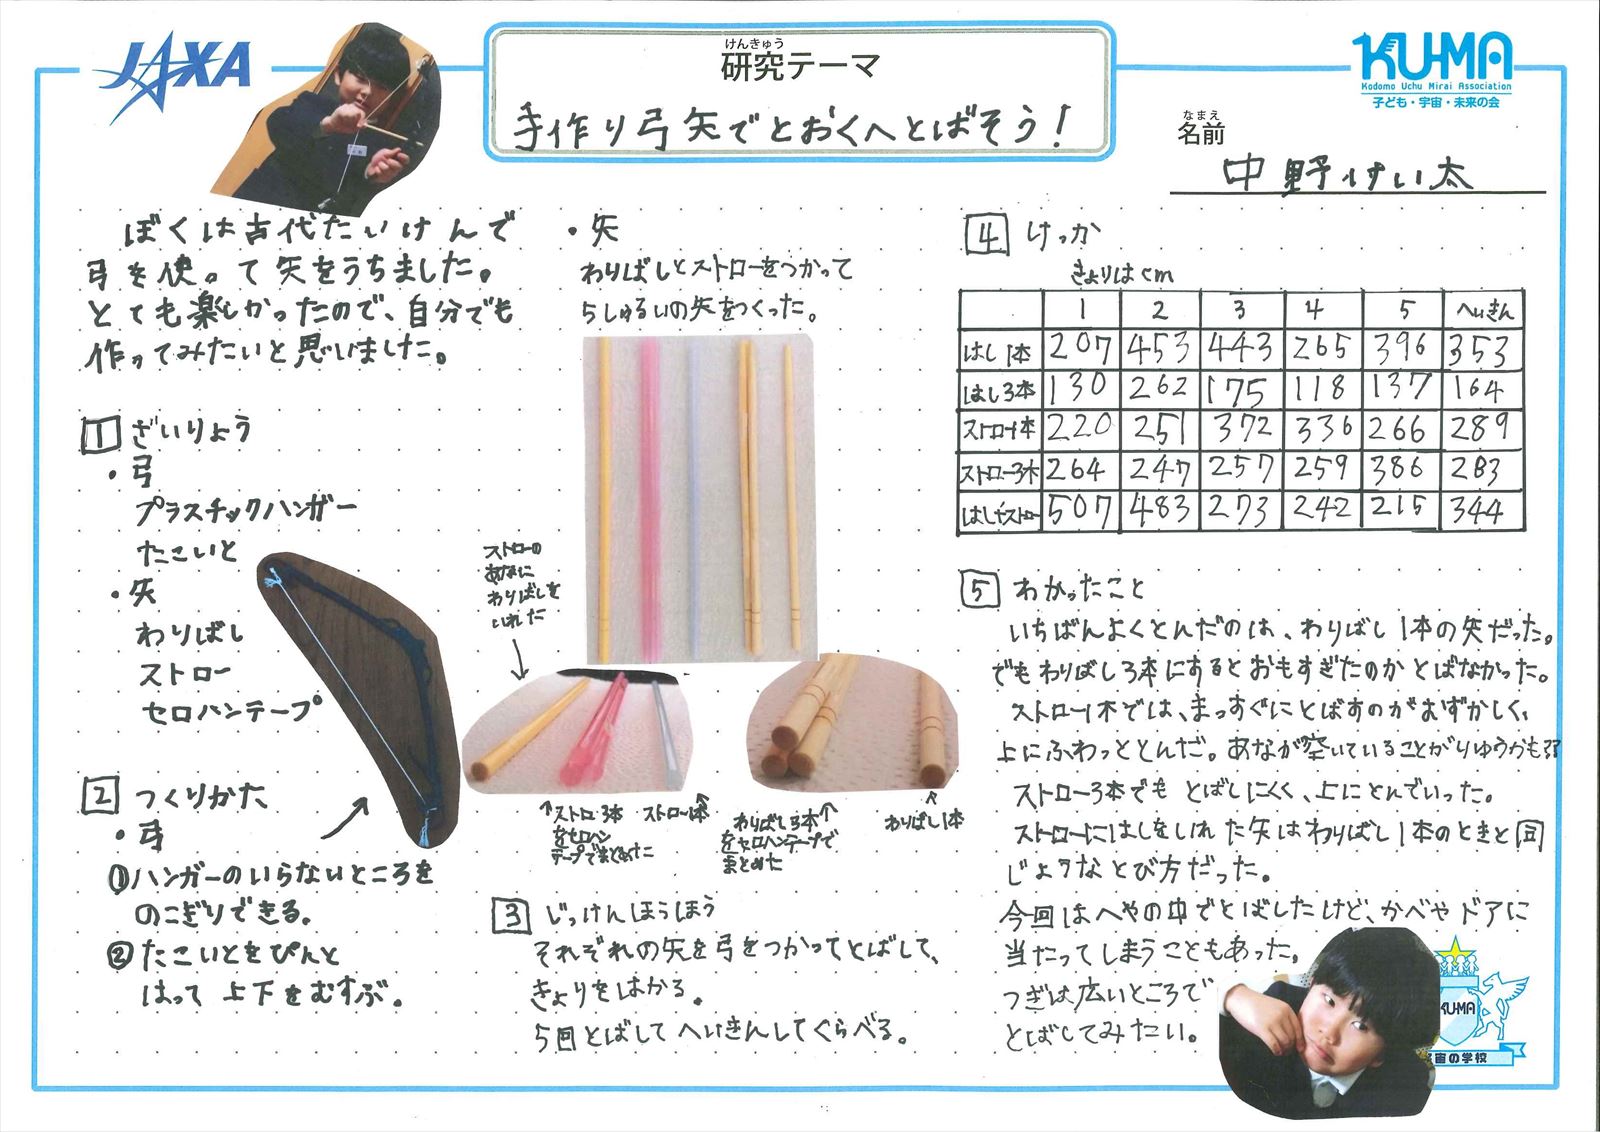 JAXA
けんきゅう
研究テーマ
手作り弓矢でとおくへとばそう!
KU-MA
Kodomo Uchu Mirai Association
子ども・宇宙・未来の会
なまえ
名前
中野けい太
ぼくは古代たいけんで
弓を使って矢をうちました。
とても楽しかったので、自分でも
作ってみたいと思いました。
1 ざいりょう
・弓
プラスチックハンガー
たこいと
・矢
わりばし
ストロー
セロハンテープ
2 つくりかた
・弓
①ハンガーのいらないところを
のこぎりできる。
②たこいとをぴんと
はって上下をむすぶ。
・矢
わりばしとストローをつかって
5しゅるいの矢をつくった。
ストローの
あなに
わりばしを
いれた
ストロー3本
をセロハン
テープでまとめた
ストロー1本
わりばし3本
をセロハンテープで
まとめた
わりばし1本
3 じっけんほうほう
それぞれの矢を弓をつかってとばして、
きょりをはかる。
5回とばしてへいきんしてくらべる。
4 けっか
きょりはcm
1 2 3 4 5 へいきん
はし1本 207 453 443 265 396 353
はし3本 130 262 175 118 137 164
ストロー1本 220 251 372 336 266 289
ストロー3本 264 247 257 259 386 283
はし+ストロー 507 483 273 242 215 344
5 わかったこと
いちばんよくとんだのは、わりばし1本の矢だった。
でもわりばし3本にするとおもすぎたのかとばなかった。
ストロー1本では、まっすぐにとばすのがむずかしく、
上にふわっととんだ。あながが空いていることがりゆうかも??
ストロー3本でもとばしにくく、上にとんでいった。
ストローにはしをいれた矢はわりばし1本のときと同
じようなとび方だった。
今回はへやの中でとばしたけど、かべやドアに
当たってしまうこともあった。
つぎは広いところで
とばしてみたい。
KU-MA
宇宙の学校